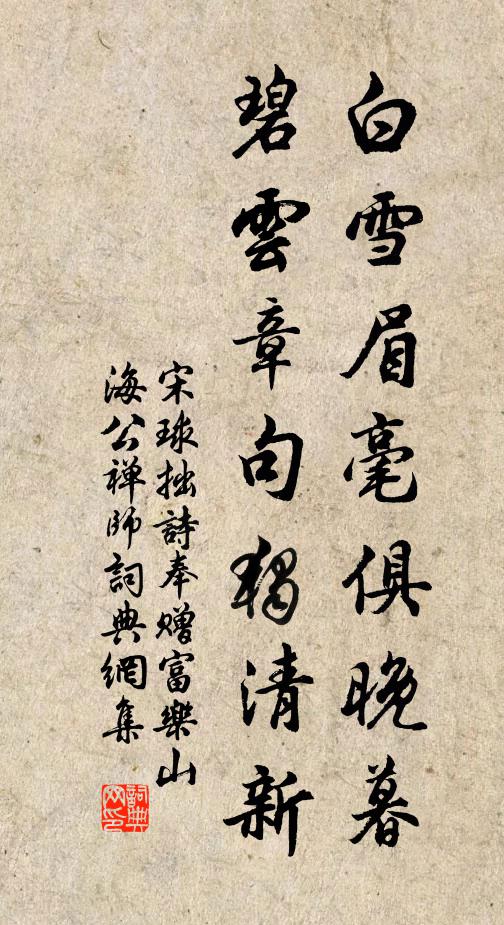 白雪眉毫俱晚暮
碧雲章句獨清新
宋球拙詩奉贈富樂山
海公禅師詞典網集
詞典
网印